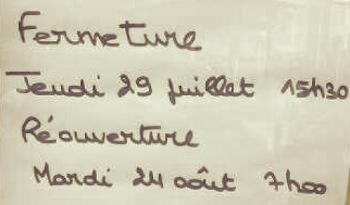 Fermeture
Jeudi 29 juillet 15h30
Réouverture
Mardi 24 août 7h00